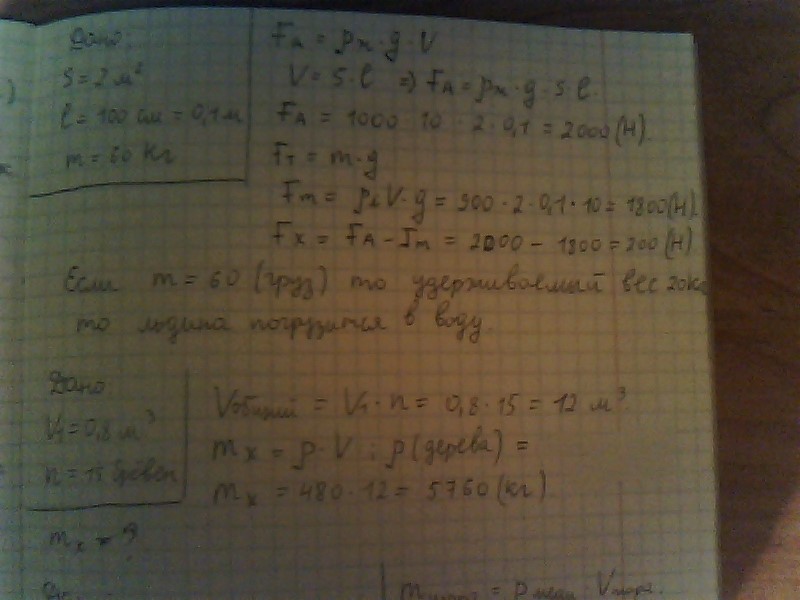 Дано:
S = 2 м²
l = 100 см = 0,1 м
m = 60 кг
FA = ρж · g · V
V = S · l ⇒ FA = ρж · g · S · l.
FA = 1000 · 10 · 2 · 0,1 = 2000 (Н).
Fт = m · g
Fm = ρл V · g = 900 · 2 · 0,1 · 10 = 1800 (Н).
Fx = FA - Fm = 2000 - 1800 = 200 (Н)
Если m = 60 (груз) то удерживаемый вес 20кг
то льдина погрузится в воду.
Дано
V1 = 0,8 м³
n = 15 бревен
mx = ?
Vобщий = V1 · n = 0,8 · 15 = 12 м³
mx = ρ · V ; ρ (дерева) =
mx = 480 · 12 = 5760 (кг).